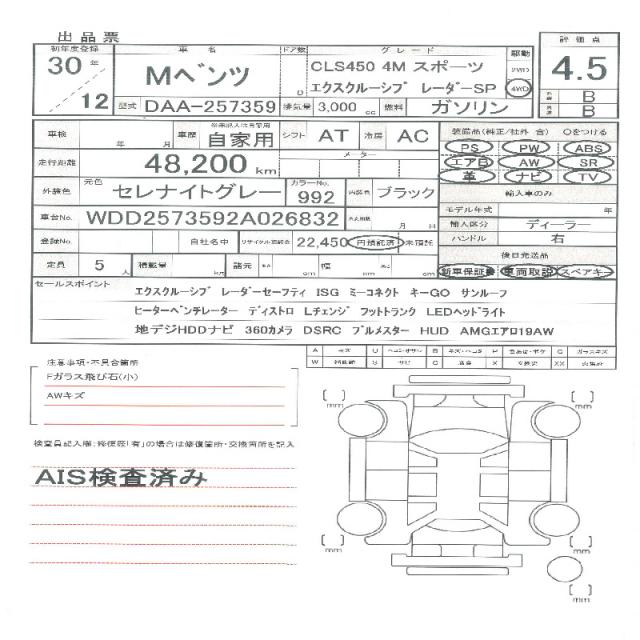 出品票
初年度登録 車名 ドア数 グレード 駆動 評価点
30年 Mベンツ D CLS450 4M スポーツ 2WD 4.5
12 エクスクルーシブ レーダーSP 4WD B
型式 DAA-257359 排気量 3,000 cc 燃料 ガソリン B
車検 年 月 車歴 自家用 シフト AT 冷房 AC 装備品(純正/社外 含) Oをつける
走行距離 48,200 km メーター PS PW ABS
エアB AW SR
革 ナビ TV
外装色 元色 セレナイトグレー カラーNo. 992 内装色 ブラック 輸入車のみ
モデル年式 年
車台No. WDD2573592A026832 月 日 輸入区分 ディーラー
登録No. 自社名中 リサイクル預託金 22,450 円預託済 未預託 ハンドル 右
後日発送品
定員 5人 積載量 kg 諸元 長さ cm 幅 cm cm 新車保証書 車両取説 スペアキー
セールスポイント エクスクルーシブ レーダーセーフティ ISG ミーコネクト キーGO サンルーフ
ヒーターベンチレーター ディストロ Lチェンジ フットトランク LEDヘッドライト
地デジHDDナビ 360カメラ DSRC ブルメスター HUD AMGエアロ19AW
A キズ U B キズ・ヘコミ P C ガラスキズ
W S サビ C 腐食 X 交換済 XX
注意事項・不具合箇所
Fガラス飛び石(小)
AWキズ
検査員記入欄:修復歴「有」の場合は修復箇所・交換箇所を記入
AIS検査済み
mm
mm
mm
mm
mm